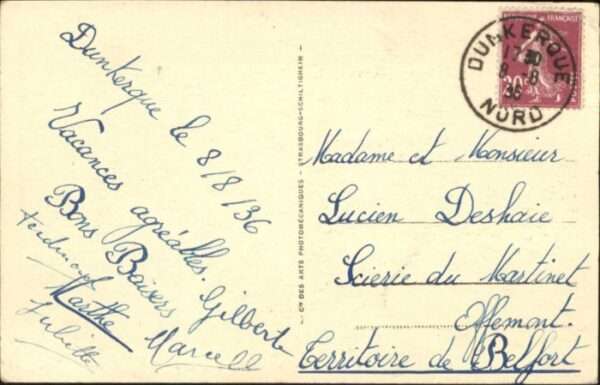 Dunkerque le 8/8/36
Vacances agréables.
Bons Baisers
Gilberte
Ferdinand
Marthe
Marcelle
Juliette
Cie DES ARTS PHOTOMÉCANIQUES - STRASBOURG-SCHILTIGHEIM -
FRANÇAISE
20
DUNKERQUE
17 30
8 -8
36
NORD
Madame et Monsieur
Lucien Deshaie
Scierie du Martinet
Offemont.
Territoire de Belfort